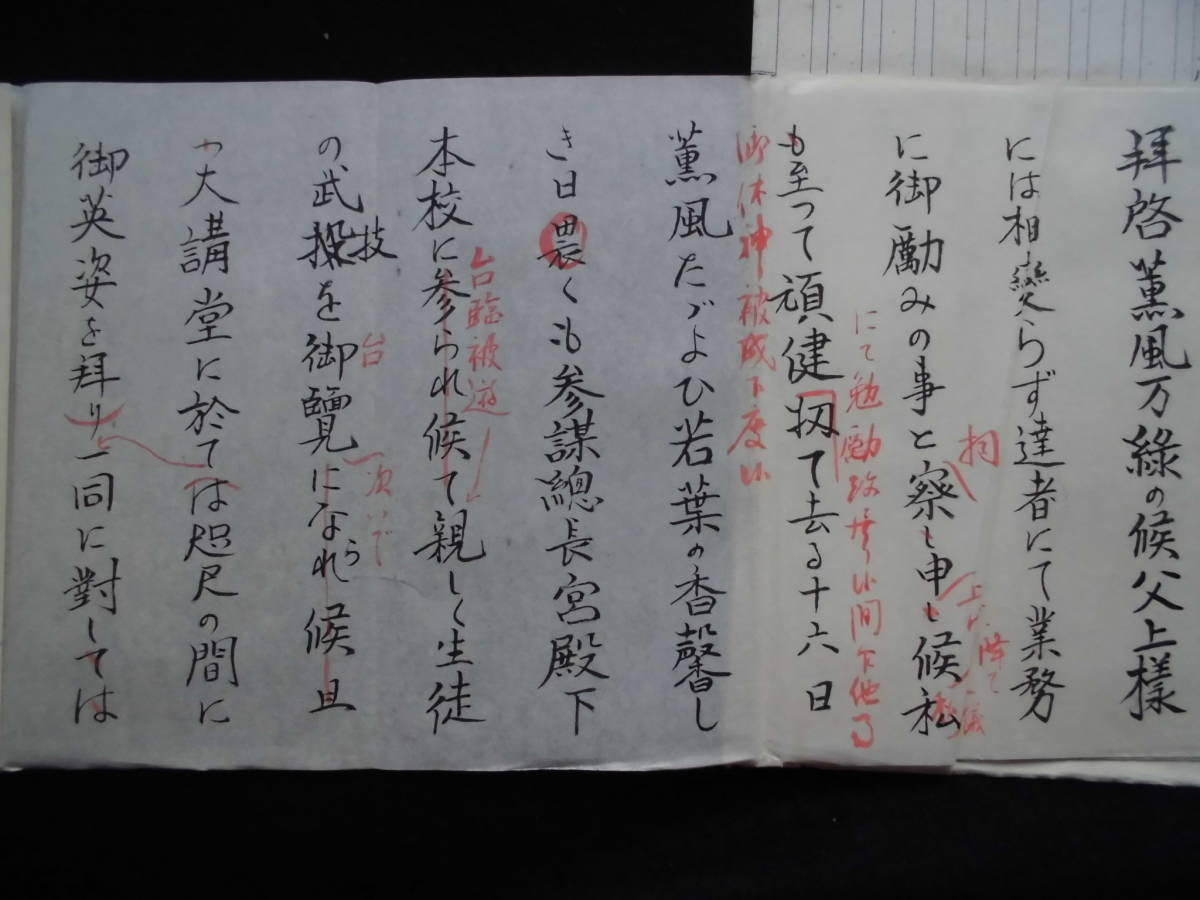 拝啓薫風万緑の候父上様
には相變らず達者にて業務
に御勵みの事と察し申し候私
も至つて頑健扨て去る十六日
にて勉勵
御休神被成下度候
薫風たゞよひ若葉の香馨し
き日畏くも参謀總長宮殿下
台臨被遊
本校に参られ候て親しく生徒
の武技を御覽になられ候且
台
次いで
つ大講堂に於ては咫尺の間に
御英姿を拝り一同に對しては